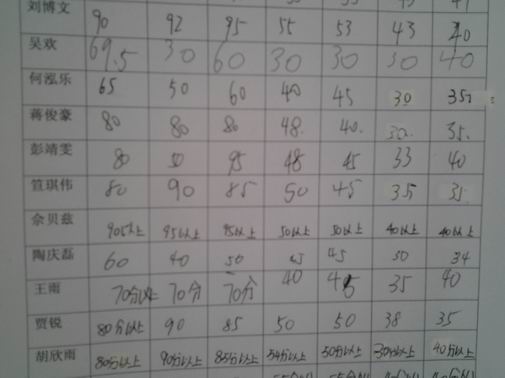 刘博文 90 92 95 55 53 43 40
吴欢 69.5 30 60 30 30 30 40
何泓乐 65 50 60 40 45 30 35
蒋俊豪 80 80 80 48. 40. 30. 35.
彭靖雯 80 50 95 48 45 33 40
笪琪伟 80 90 85 50 45 35 35
佘贝兹 90以上 95以上 95以上 50以上 50以上 40以上 40以上
陶庆磊 60 40 50 45 45 50 34
王雨 70分以上 70分 70分 40 45 35 40
贾锐 80分以上 90 85 50 50 38 35
胡欣雨 80分以上 90分以上 85分以上 54分以上 50分以上 30分以上 40分以上